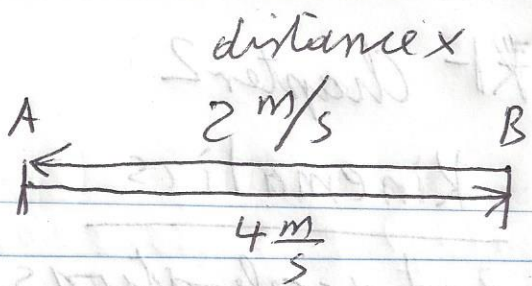 distance x
A 2 m/s B
4 m/s